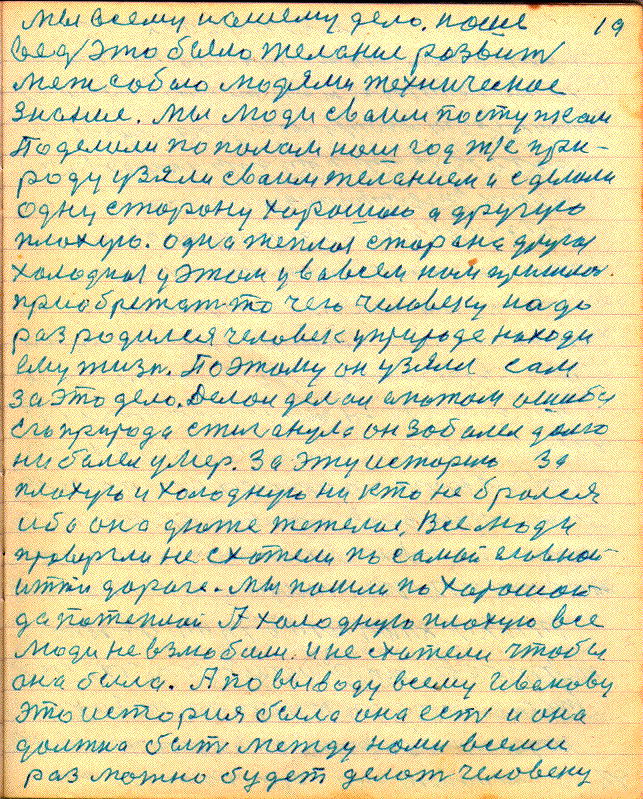 мы всему нашему дело. наше 19
вед это было желание розвит
меж собою людями техническое
знание. мы люди сваим поступкам
Поделили пополам наш год же при-
роду узяли сваим желанием и сделали
одну сторону хорошаю а другую
плохую. одна теплоя старана другая
холодная у этом у вавсем нам пришлос
приобретат то чего человеку надо
раз родился человек уприроде находи
ему жизн. Поэтому он узялся сам
за это дело. Делал делал а патом ошибся
Его природа стиганула он заболел долго
ни балел умер. За эту историю За
плохую и холодную ни кто не брался
ибо она дюже тежелоя. Все люди
правергли не схотели по самой главной
итти дароге. Мы пошли по харошой
да патеплай А холодную плохую все
люди невзлюбили. и не схатели чтобы
она была. А по выводу всему Иванову
это история была она ест и она
должна быт между нами всеми
раз можно будет делат человеку